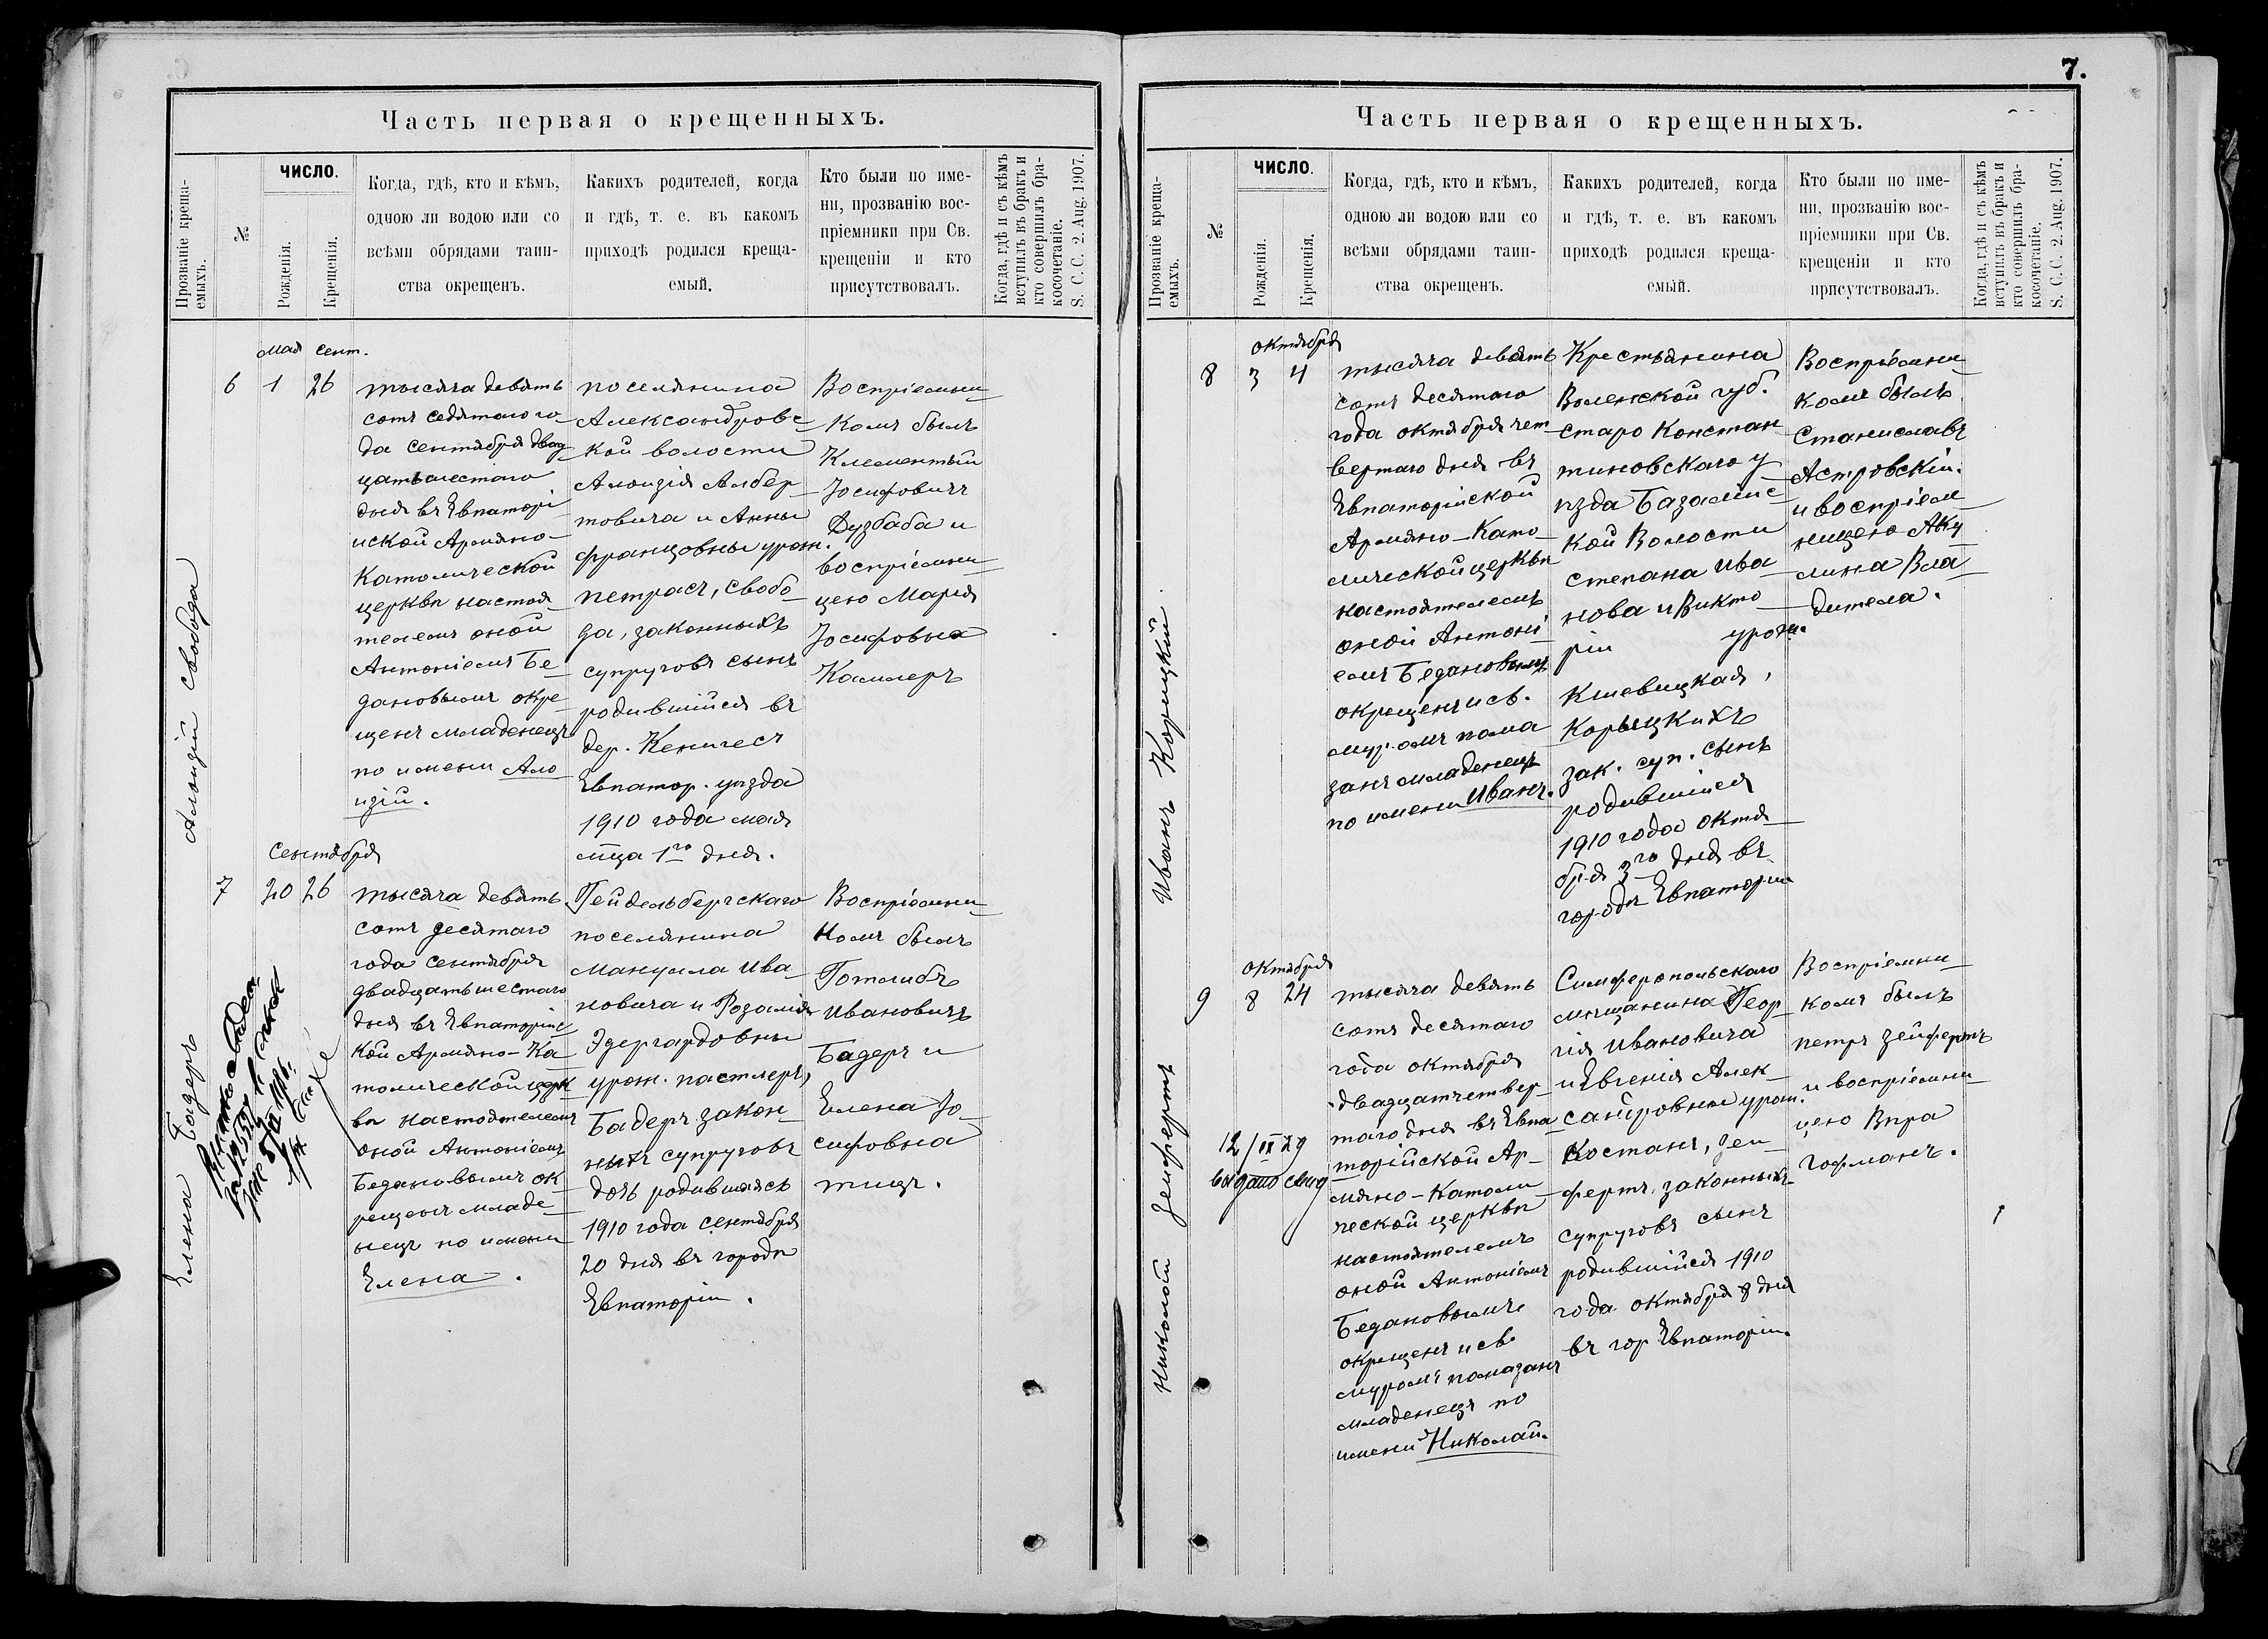 7.
Часть первая о крещенныхъ.
Прозваніе креща-
емыхъ.
№
ЧИСЛО.
Рожденія.
Крещенія.
Когда, гдѣ, кто и кѣмъ,
одною ли водою или со
всѣми обрядами таин-
ства окрещенъ.
Какихъ родителей, когда
и гдѣ, т. е. въ какомъ
приходѣ родился креща-
емый.
Кто были по име-
ни, прозванію вос-
пріемники при Св.
крещеніи и кто
присутствовалъ.
Когда, гдѣ и съ кѣмъ
вступилъ въ бракъ и
кто совершилъ бра-
косочетаніе.
S. C. C. 2. Aug. 1907.
Алоизій Свобода
мая сент.
6 1 26
тысяча девять
сотъ седятаго го
да сентября двад
цать шестаго
дня въ Евпаторі
иской Армяно-
католической
церкви настоя
телемъ оной
Антоніемъ Бе
дановымъ окре
щенъ младенецъ
по имени Ало
изій.
поселянина
Александровс
кой волости
Алоизія Албер
товича и Анны
францовны урож.
петрасъ, свобо
да, законныхъ
супруговъ сынъ
родившійся въ
дер. Кенигесъ
Евпатор. уѣзда
1910 года мая
мца 1го дня.
Воспріемни
комъ былъ
Клементый
Іосифовичъ
Фузбаба и
воспріемни
цею Марія
Іосифовна
Каммеръ
Елена Бадеръ
сентября
7 20 26
тысяча девять
сотъ десятаго
года сентября
двадцать шестаго
дня въ Евпаторійс
кой Армяно-Ка
толической церк
ви настоятелемъ
оной Антоніемъ
Бедановымъ ок
рещенъ младе
нецъ по имени
Елена.
Гейдельбергскаго
поселянина
Мануила Ива
новича и Розаліи
Эдергардовны
урож. пастлеръ,
Бадеръ закон
ныхъ супруговъ
дочь родившаясь
1910 года сентября
20 дня въ городѣ
Евпаторіи.
Воспріемни
комъ былъ
Готлибъ
Ивановичъ
Бадеръ и
Елена Іо
сифовна
тицъ.
Часть первая о крещенныхъ.
Прозваніе креща-
емыхъ.
№
ЧИСЛО.
Рожденія.
Крещенія.
Когда, гдѣ, кто и кѣмъ,
одною ли водою или со
всѣми обрядами таин-
ства окрещенъ.
Какихъ родителей, когда
и гдѣ, т. е. въ какомъ
приходѣ родился креща-
емый.
Кто были по име-
ни, прозванію вос-
пріемники при Св.
крещеніи и кто
присутствовалъ.
Когда, гдѣ и съ кѣмъ
вступилъ въ бракъ и
кто совершилъ бра-
косочетаніе.
S. C. C. 2. Aug. 1907.
Иванъ Корицкій
октября
8 3 4
тысяча девять
сотъ десятаго
года октября чет
вертаго дня въ
Евпаторійской
Армяно-Като
лической церкви
настоятелемъ
оной Антоні
емъ Бедановымъ
окрещенъ и св.
муромъ пома
занъ младенецъ
по имени Иванъ.
Крестьянина
Воленской губ.
старо Констан
тиновскаго у
ѣзда Базалійс
кой Волости
степана Ива
нова и Викто
ріи урож.
Клевицкая,
Корыцкихъ
зак. суп. сынъ
родившійся
1910 года октя
бря 3го дня въ
городѣ Евпаторіи
Воспріемни
комъ былъ
Станиславъ
Астровскій.
и воспріем
ницею Аку
лина Вла
дитела.
Николай Зейфертъ
октября
9 8 24
12/IX 29
выдано свид
тысяча девять
сотъ десятаго
года октября
двадцатчетвер
таго дня въ Евпа
торійской Ар
мяно-Католи
ческой церкви
настоятелемъ
оной Антоніемъ
Бедановымъ
окрещенъ и св.
муромъ помазанъ
младенецъ по
имени Николай.
Симферопольскаго
мѣщанина Геор
гія Ивановича
и Евгенія Алек
сандровны урож.
Костанъ, Зей
фертъ, законныхъ
супруговъ сынъ
родившійся 1910
года октября 8 дня
въ гор Евпаторіи.
Воспріемни
комъ былъ
петръ Зейфертъ
и воспріемни
цею Вѣра
Гофманъ.